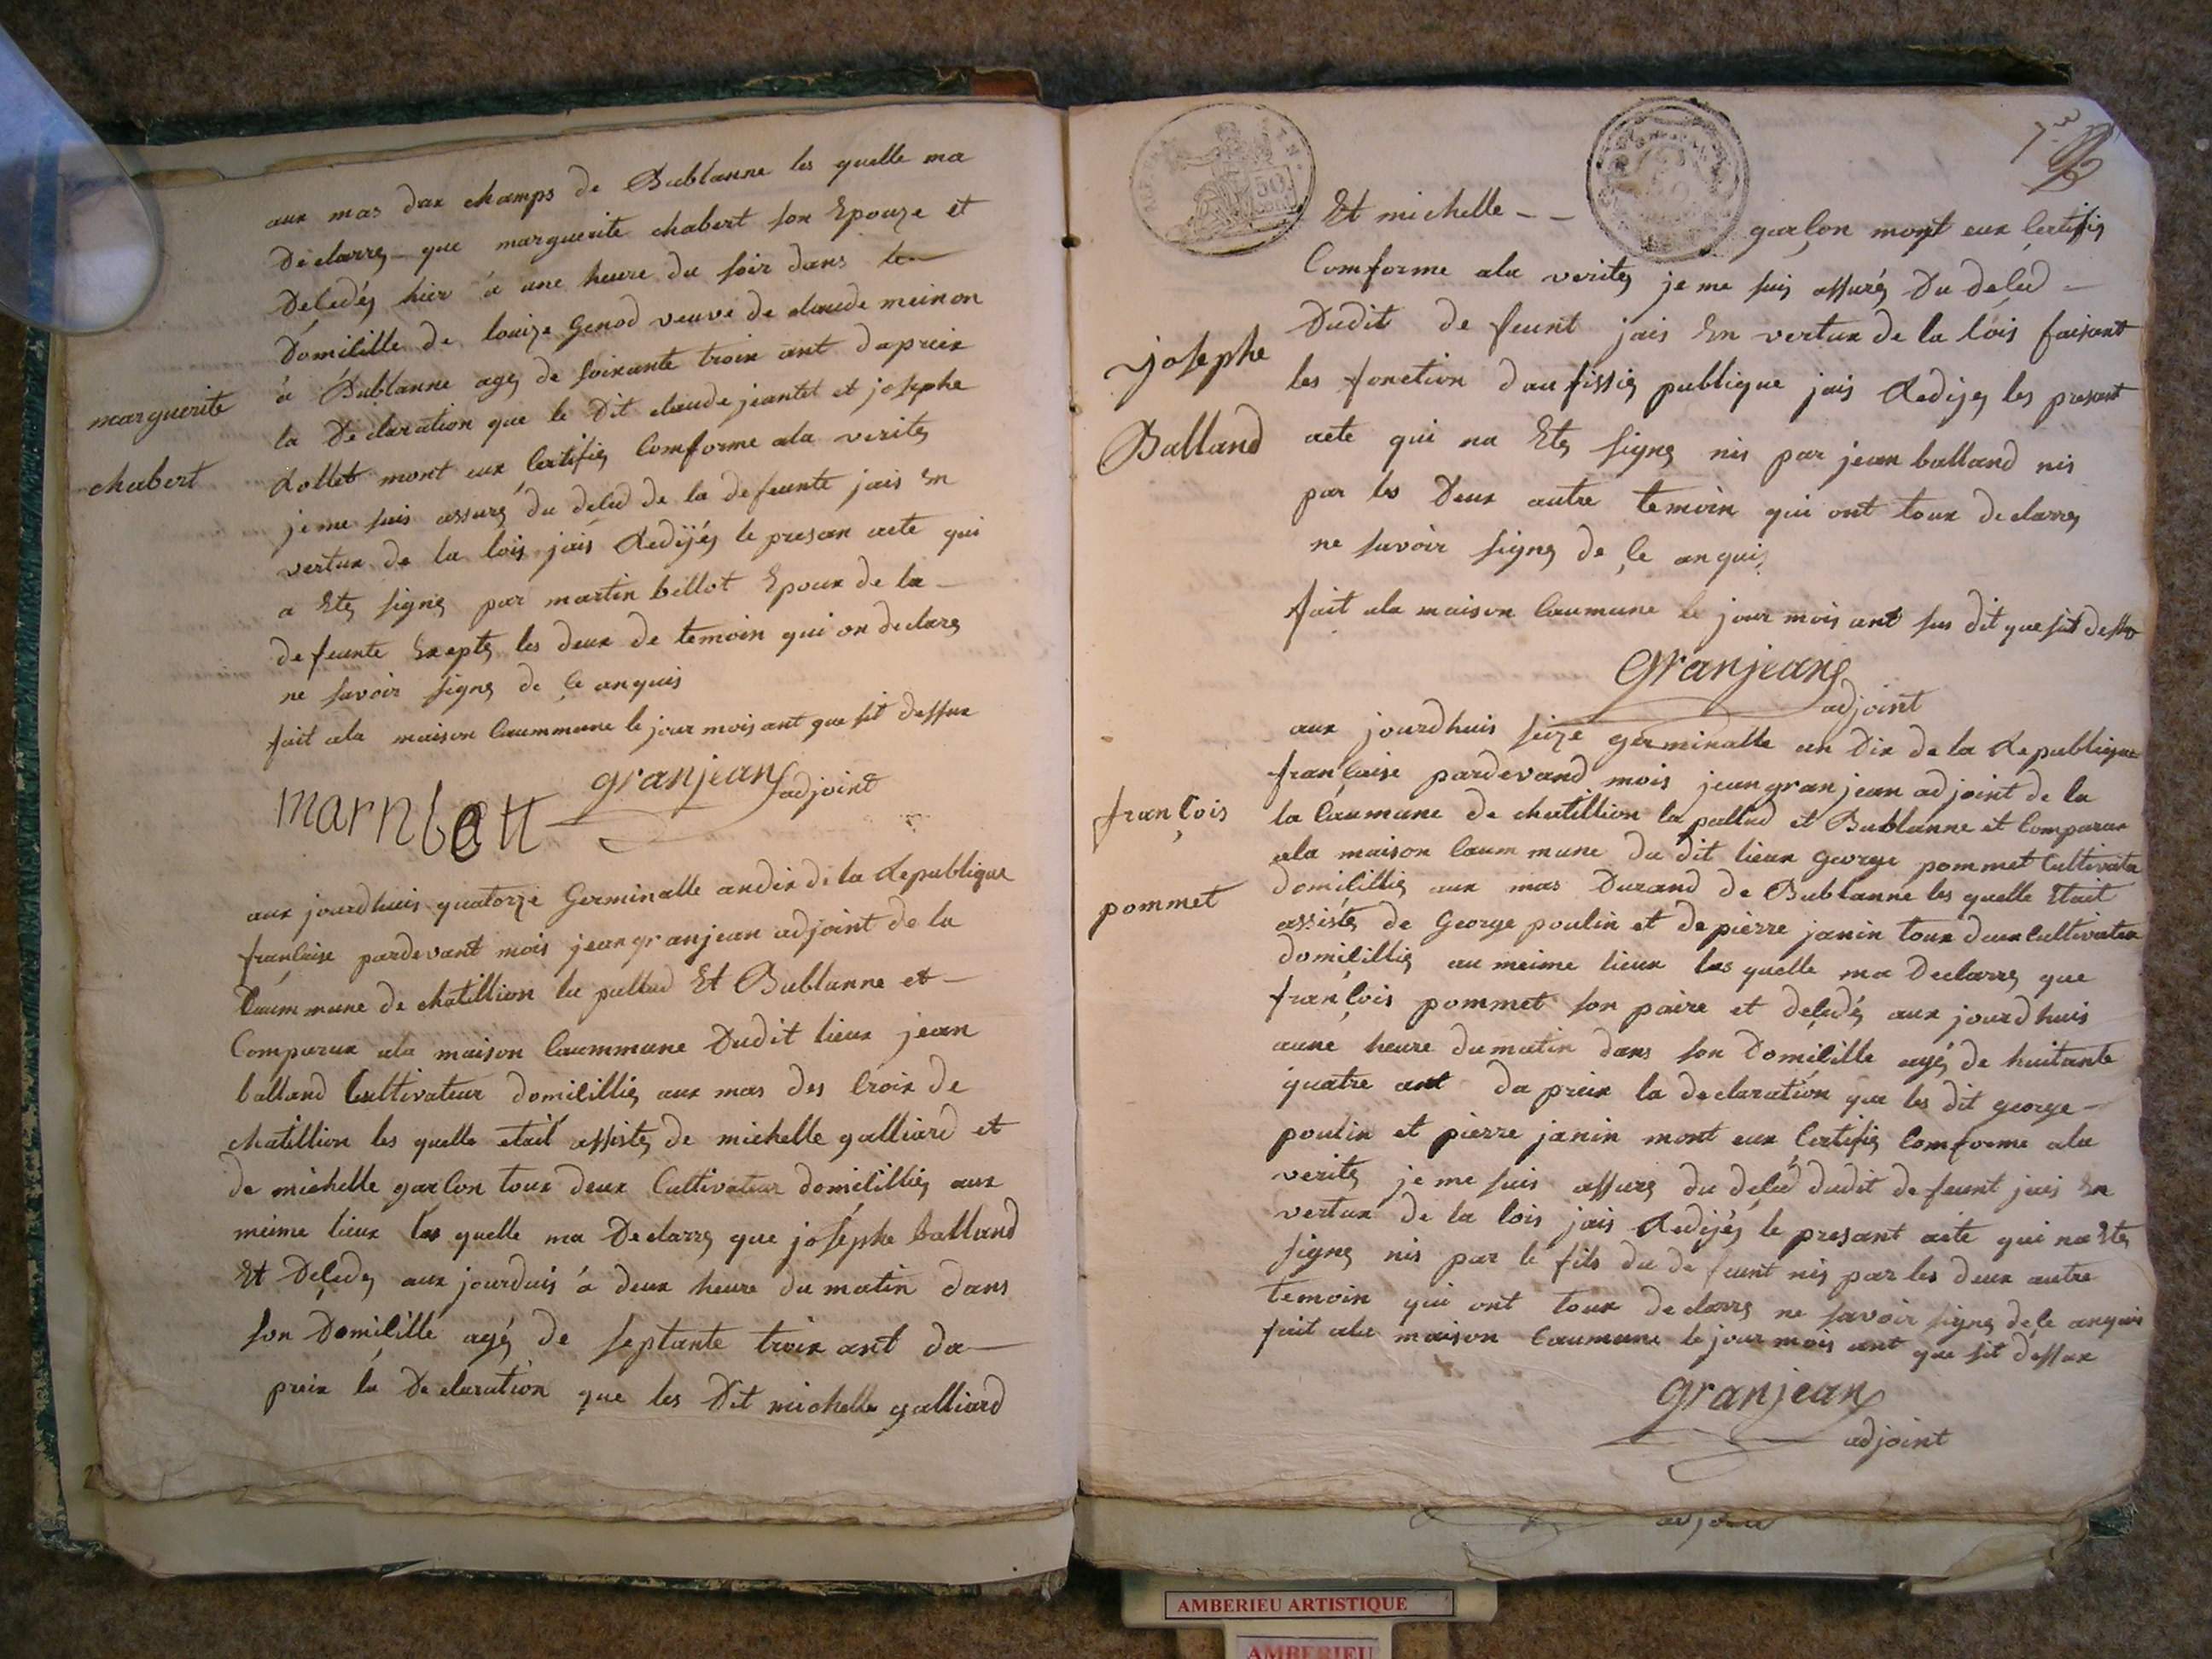 aux mas dax champs de Bublanne les quelle ma
declarrez que marguerite chabert son Epouze et
deledéz hier á une heure du soir dans le
Domilille de louize Genod veuve de claude meinon
á Bublanne agez de soixante troix ant dapreix
marguerite
la declaration que le dit claude jeantet et josephe
chabert
Rollet mont eux certifiez Comforme ala veritez
je me suis assurez du deled de la defeunte jais En
vertux de la lois jais Redijéz le presan acte qui
a Etez signez par martin bellot Epoux de la
defeunte Exeptez les deux de temoin qui on declarez
ne savoir signez de çe anquis
fait ala maison Caummune le jour mois ant que sit dessux
granjean adjoint
marn bett
aux jourdhuis quatorze Germinalle an dix de la Republique
franlaise pardevant mois jean granjean adjoint de la
Caummune de chatillion la pallud Et Bublanne et
Comparux ala maison Caummune Dudit lieux jean
balland Cultivateur domilillièz aux mas des Croix de
chatillion les quelle etait assistez de michelle galliard et
de michelle garlon toux deux Cultivateur domililliez aux
meime lieux les quelle ma Declarrez que joséphe balland
Et Deledez aux jourduis á deux heure du matin dans
son Domilille agéz de septante troix ant da
preix la Declaration que les Dit michelle galliard
Et michelle - - garçon mont eux Certifiez
Comforme ala veritez je me suis assuréz Du deled
Dudit defeunt jais En vertux de la lois faisant
josephe
les fonction daufissiez publique jais Redijez les presant
Balland
acte qui na Etez signez nis par jean balland nis
par les Deux autre temoin qui ont toux declarrez
ne savoir signez de çe anquis
fait ala maison Caumune le jour mois ant sus dit que sit dessu
granjean
adjoint
aux jourdhuis seize germinalle an Dix de la Republique
française pardevand mois jean granjean adjoint de la
françois
la Caumune de chatillion la pallud et Bublanne et Comparux
ala maison Caummune du dit lieux George pommet Cultivateu
pommet
domililliez aux mas Durand de Bublanne les quelle Etait
assistéz de George poulin et de pierre janin toux deux Cultivateu
domililliez au meime lieux les quelle ma Declarrez que
françois pommet son paire et deledéz aux jourdhuis
aune heure du matin dans son Domilille agéz de huitante
quatre ant da preix la declaration que les dit george
poulin et pierre janin mont eux Certifiez Comforme ala
veritez je me suis assurez du deled dudit defeunt jais En
vertux de la lois jais Redijéz le presant acte qui na Etez
signez nis par le fils du defeunt nis par les deux autre
temoin qui ont toux declarrez ne savoir signez de le anquis
fait ala maison Caumune le jour mois ant que sit déssux
granjean
adjoint
AMBERIEU ARTISTIQUE
AMBERIEU